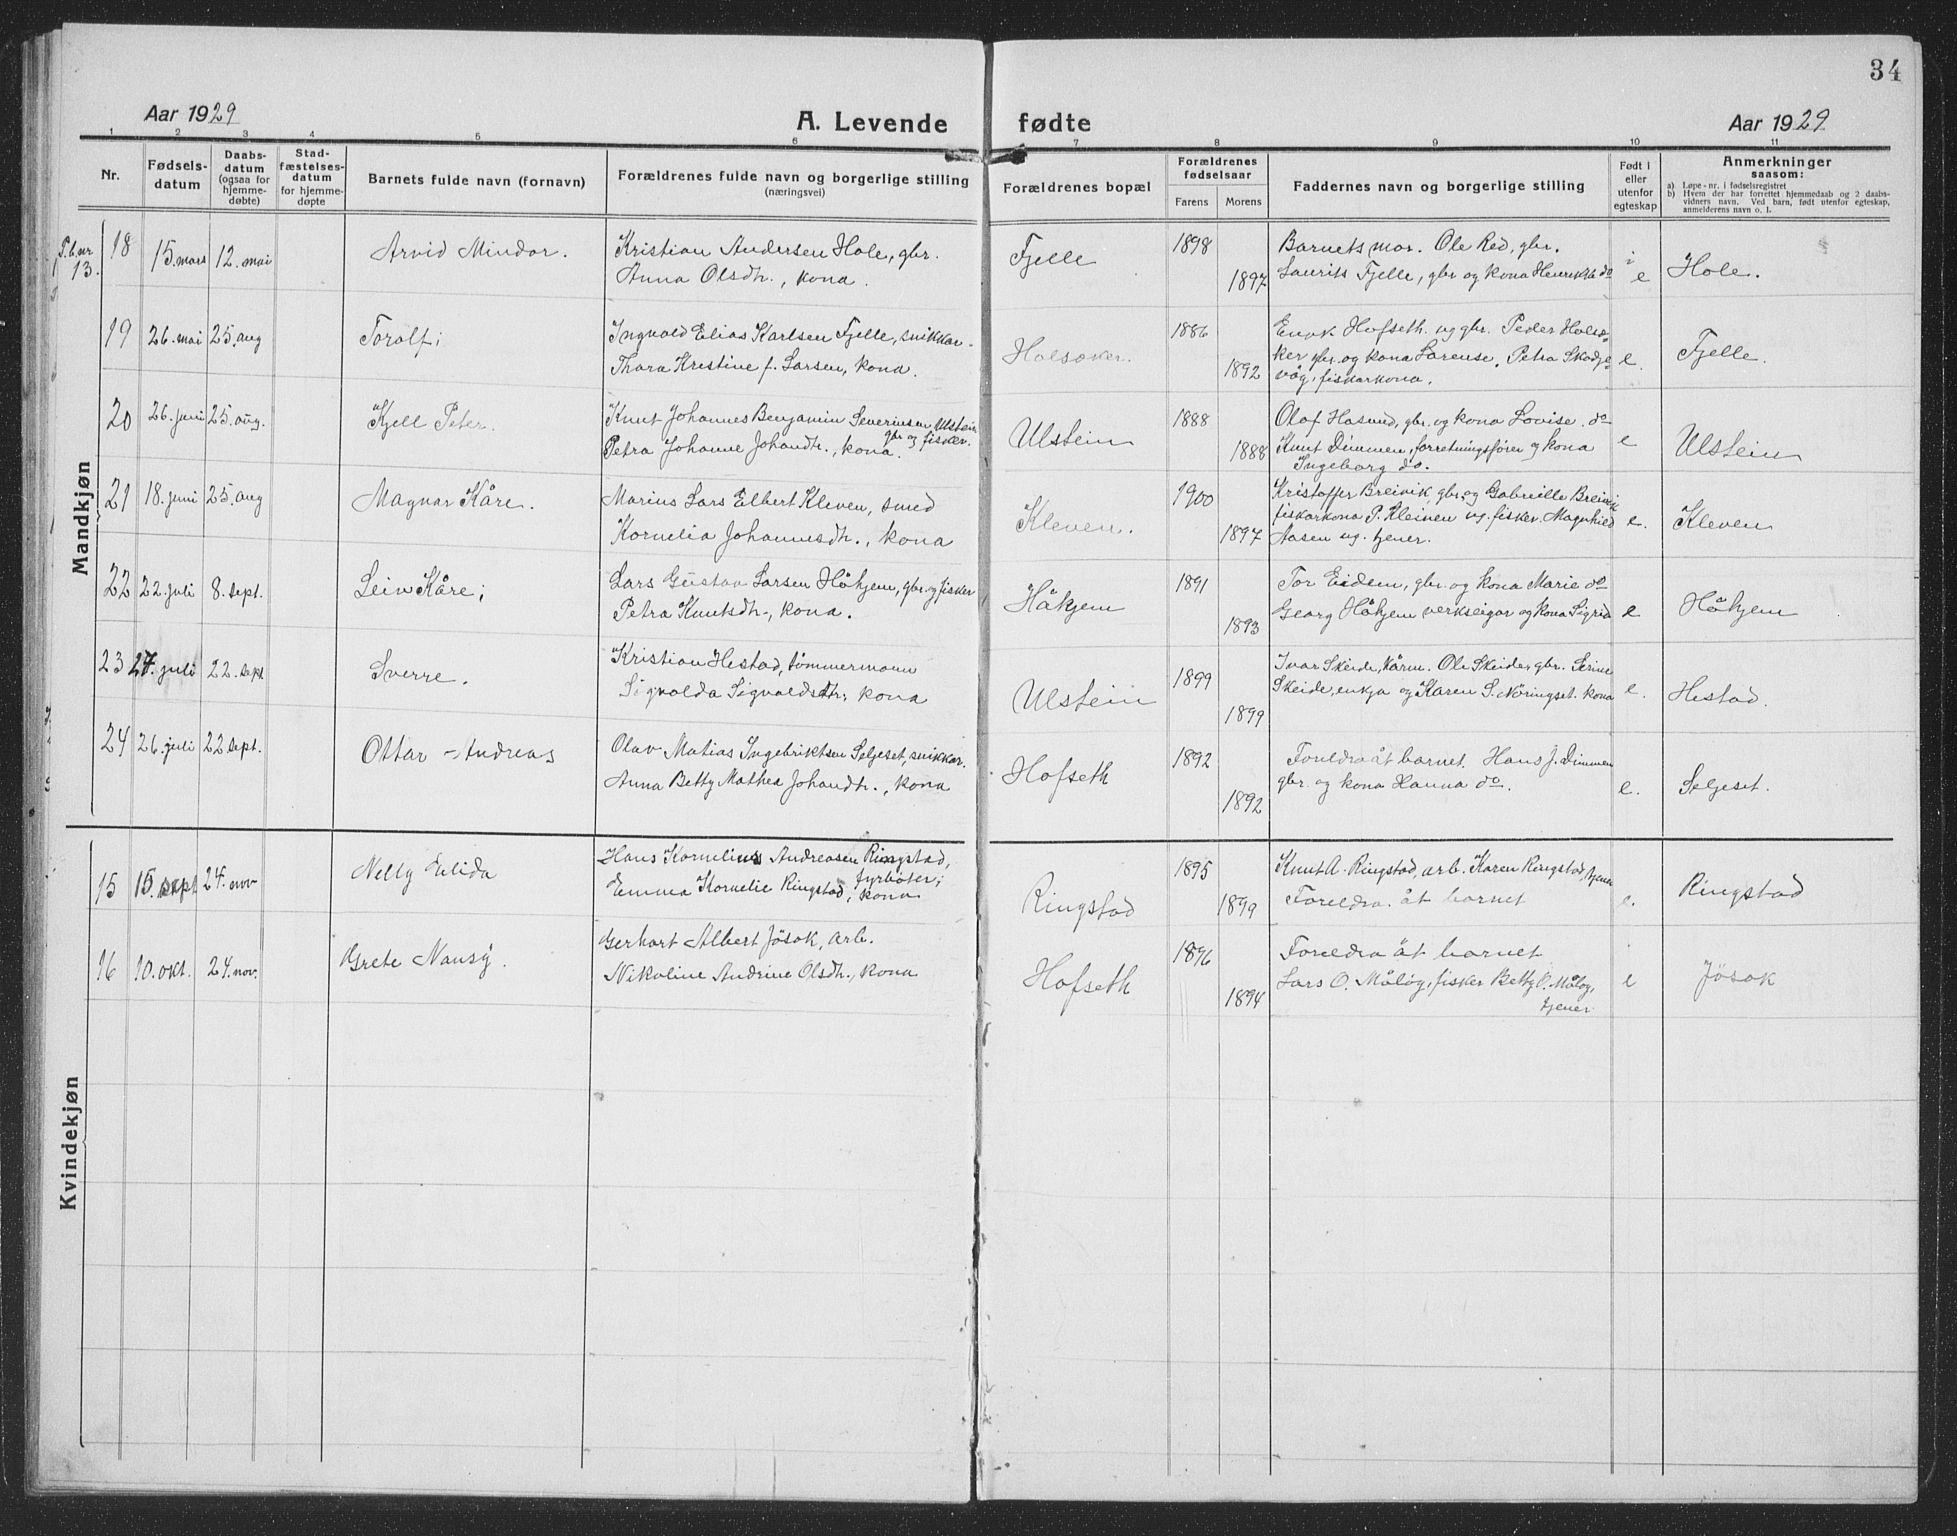 34
Aar 1929
A. Levende fødte
Aar 1929
1 2 3 4 5 6 7 8 9 10 11
Nr.
Fødsels-
datum
Daabs-
datum
(ogsaa for
hjemme-
døbte)
Stad-
fæstelses-
datum
for hjemme-
døpte
Barnets fulde navn (fornavn)
Forældrenes fulde navn og borgerlige stilling
(næringsvei)
Forældrenes bopæl
Forældrenes
fødselsaar
Farens
Morens
Faddernes navn og borgerlige stilling
Født i
eller
utenfor
egteskap
Anmerkninger
saasom:
a) Løpe-nr. i fødselsregistret
b) Hvem der har forrettet hjemmedaab og 2 daabs-
vidners navn. Ved barn, født utenfor egteskap,
anmelderens navn o. l.
Mandkjøn
13.
18 15. mars 12. mai Arvid Mindor.
Kristian Andersen Hole, gbr.
Anna Olsdtr., kona.
Fjelle 1898 1897
Barnets mor. Ole Red, gbr.
Laurits Fjelle, gbr og kona Henrikke do
i e Hole.
19 26. mai 25. aug Torolf;
Ingvald Elias Karlsen Fjelle, snikkar.
Thora Kristine f. Larsen, kona.
Holsæker. 1886 1892
Enok Hofseth ug gbr. Peder Holsæ-
ker gbr. og kona Lorense. Petra Skodje-
våg, fiskarkona.
e. Fjelle.
20 26. juni 25. aug. Kjell Peter.
Knut Johannes Benjamin Severinsen Ulstein
gbr og fisker.
Petra Johanne Johandtr., kona.
Ulstein 1888 1888
Olaf Hasund, gbr. og kona Lovise. do
Knut Dimmen, forretningsfører og kona
Ingeborg do.
e Ulstein
21 18. juni 25. aug Magnar Kåre.
Marius Lars Elbert Kleven, smed
Kornelia Johannesdtr., kona
Kleven. 1900 1897
Kristoffer Breivik, gbr. og Gabrielle Breivik
fiskarkona P. Kleiven ug. fisker. Magnhild
Aasen ug. tjener.
e. Kleven
22 22. juli 8. sept. Leiv Kåre;
Lars Gustav Larsen Håkjem, gbr. og fisker
Petra Knutsdtr, kona.
Håkjem 1891 1893
Tor Eidem, gbr. og kona Marie do
Georg Håkjem verkseigar og kona Sigrid
e Håkjem
23 24. juli 22. sept Sverre.
Kristian Hestad, tømmermann
Sigvalda Sigvaldsdtr; kona
Ulstein 1899 1899
Ivar Skeide, kårm. Ole Skeide, gbr. Serine
Skeide, enkja og Karen S. Nöringset. kona
e. Hestad.
24 26. juli 22 sept. Ottar Andreas
Olav Matias Ingebriktsen Seljeset, snikkar.
Anna Betty Mathea Johandtr., kona
Hofseth 1892 1892
Foreldra åt barnet. Hans J. Dimmen
gbr. og kona Hanna do.
e. Seljeset.
Kvindekjøn
15 15. sept 24. nov Nelly Elida
Hans Kornelius Andreasen Ringstad,
fyrbøter;
Emma Kornelie Ringstad, kona
Ringstad 1895 1899
Knut A. Ringstad, arb. Karen Ringstad, tjener
Foreldra åt barnet
e. Ringstad
16 10. okt. 24. nov. Grete Nansy.
Gerhart Albert Jøsok, arb.
Nikoline Andrine Olsdtr., kona
Hofseth 1896 1894
Foreldra åt barnet
Lars O. Måløy, fisker Betty O. Måløy,
tjener
e Jøsok